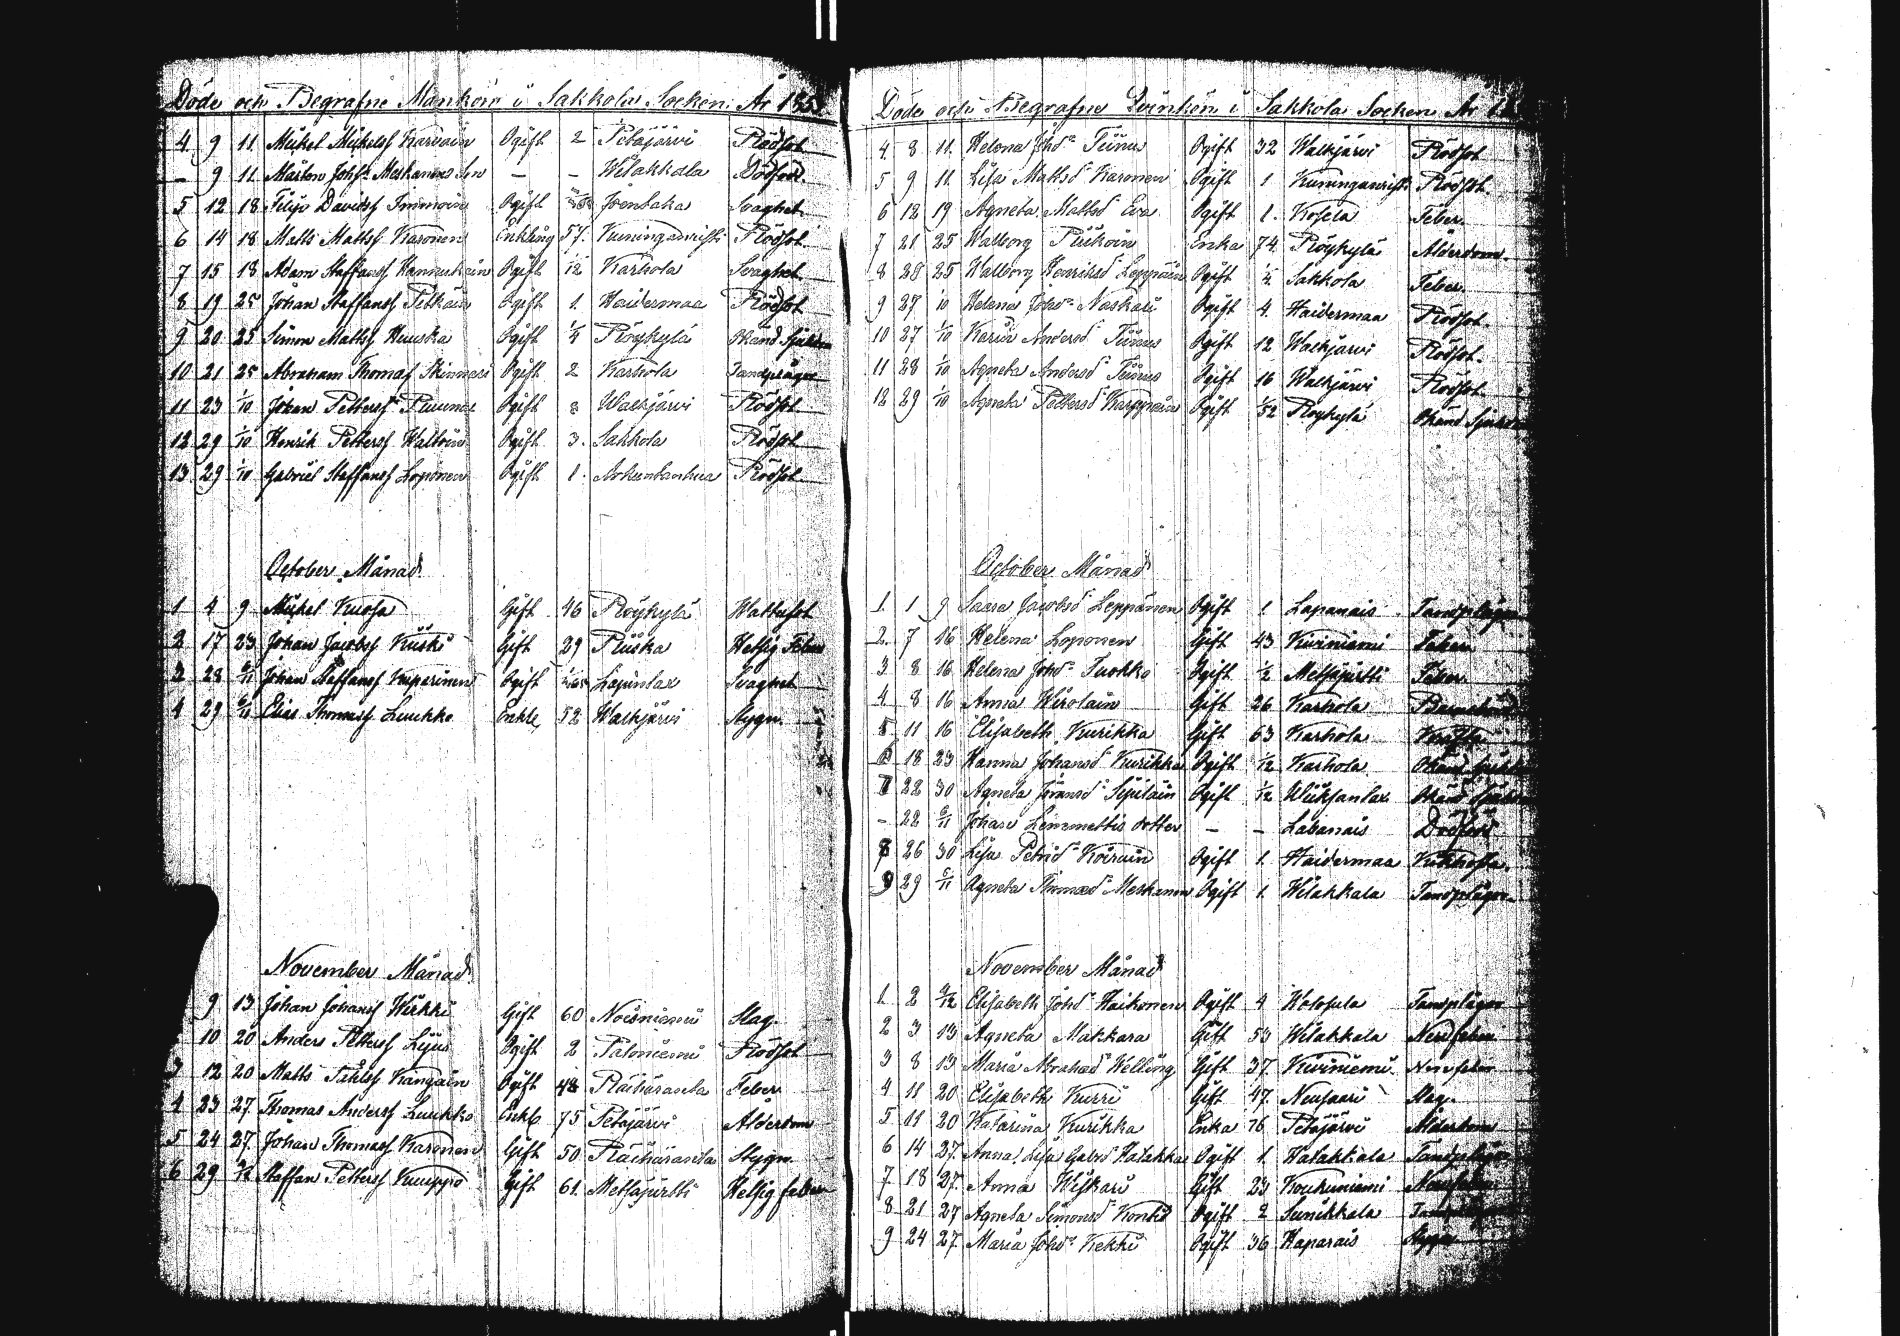 Döde och Begrafne Mankön i Sakkola Socken. År 185
4 9 11 Mickel Mickelss Karvain Ogift 2 Petäjärvi Rödsot
– 9 11 Mårten Johss Meskanens Son – – Wilakkala Dödfödd.
5 12 18 Filip Davidss Immoin Ogift Joentaka Svaghet
6 14 18 Matts Mattss Karonen Enkling 57. Kuninganristi Rödsot
7 15 18 Adam Staffanss Hannukain Ogift 1/12 Karhola Svaghet
8 19 25 Johan Staffanss Petkäin Ogift 1. Haidermaa Rödsot
9 20 25 Simon Mattss Huuska Ogift 1/4 Röykylä Okänd Sjukdom
10 21 25 Abraham Thomass Skinnari Ogift 2 Karhola Tandplågor
11 23 1/10 Johan Petterss Ogift 3 Walkjärvi Rödsot
12 29 1/10 Henrik Petterss Ogift 3. Sakkola Rödsot
13 29 1/10 Gabriel Staffanss Loponen Ogift 1. Rödsot
October Månad
1 4 9 Mickel Kuosa Gift 46 Röykylä Wattusot
2 17 23 Johan Jacobss Kiiski Gift 29 Riiska Hetsig Feber
3 28 6/11 Johan Staffanss Kuparinen Ogift Lapinlax Svaghet
4 29 6/11 Elias Thomass Luukko Enkl. 52 Walkjärvi Stygn.
November Månad
9 13 Johan Johanss Wirkki Gift 60 Noisniemi Slag.
10 20 Anders Petterss Ogift 2 Paloniemi Rödsot
3 12 20 Matts Påhlss Kangain Ogift 48 Räihäranta Feber
4 23 27. Thomas Anderss Luukko Enkl. 75 Petäjärvi Ålderdom
5 24 27. Johan Thomass Karonen Gift 50 Räihäranta Stygn.
6 29 4/12 Staffan Petterss Kuuppo Gift 61. Metsäpirtti Hetsig feber
Döde och Begrafne Qvinkön i Sakkola Socken År 1
4. 8 11. Helena Johsdr Tiinus Ogift 32 Walkjärvi Rödsot
5 9 11. Lisa Mattsdr Karonen Ogift 1 Kuninganristi Rödsot.
6 12 19 Agneta Mattsd Eva Ogift 1. Kosela Feber.
7 21 25 Walborg Piikoin Enka 74. Röykylä Ålderdom.
8 28 25 Walborg Henriksd Leppäin Ogift 1/4 Sakkola Feber.
9 27 1/10 Helena Johsdr Naskali Ogift 4. Haidermaa Rödsot.
10 27 1/10 Karin Andersd Tiinus Ogift 12 Walkjärvi Rödsot.
11 28 1/10 Agneta Andersd Tiinus Ogift 16 Walkjärvi Rödsot
12 29 1/10 Agneta Pettersd Karppain Ogift 1/52 Röykylä Okänd Sjukdom
October Månad
1. 1 9 Saara Jacobsd Leppänen Ogift 1. Lapanais Tandplågor
2. 7 16 Helena Loponen Gift 43 Kiviniemi
3 8 16 Helena Johsdr Tuokko Ogift 1/2 Metsäpirtti Feber
4. 8 16 Anna Wirolain Gift 26 Karhola Barnsbörd
5 11 16 Elisabeth Kurikka Gift 63 Karhola
6 18 23 Hanna Johansd Kurikka Ogift 1/12 Karhola Okänd Sjukdom
7 22 30 Agneta Göransd Ogift 1/12 Wiiksanlax Okänd Sjukdom
– 22 6/11 Johan Lemmettis dotter – – Labanais Dödfödd
8 26 30 Lisa Petrid Koirain Ogift 1. Haidermaa Kikhosta.
9 29 6/11 Agneta Thomasdr Meskanen Ogift 1. Wilakkala Tandplågor.
November Månad
1. 2 4/12 Elisabeth Johsd Haikonen Ogift 4 Walosula Tandplågor
2 3 13 Agneta Makkara Gift 53 Wilakkala Nervfeber
3 8 13 Maria Abrahad Kelling Gift 37. Kiviniemi Nervfeber
4 11 20 Elisabeth Kurri Gift 47. Neusaari Slag.
5 11 20 Katarina Kurikka Enka 76 Petäjärvi Ålderdom
6 14 27. Anna Lisa Gabrd Halakka Ogift 1. Halakkala Tandplågor
7. 18 27. Anna Wiskari Gift 23 Koukuniemi Nervfeber
8 21 27 Agneta Simonsd Kontio Ogift 2 Sunikkala
9 24 27. Maria Johsdr Kekki Ogift 36 Haparais Stygn